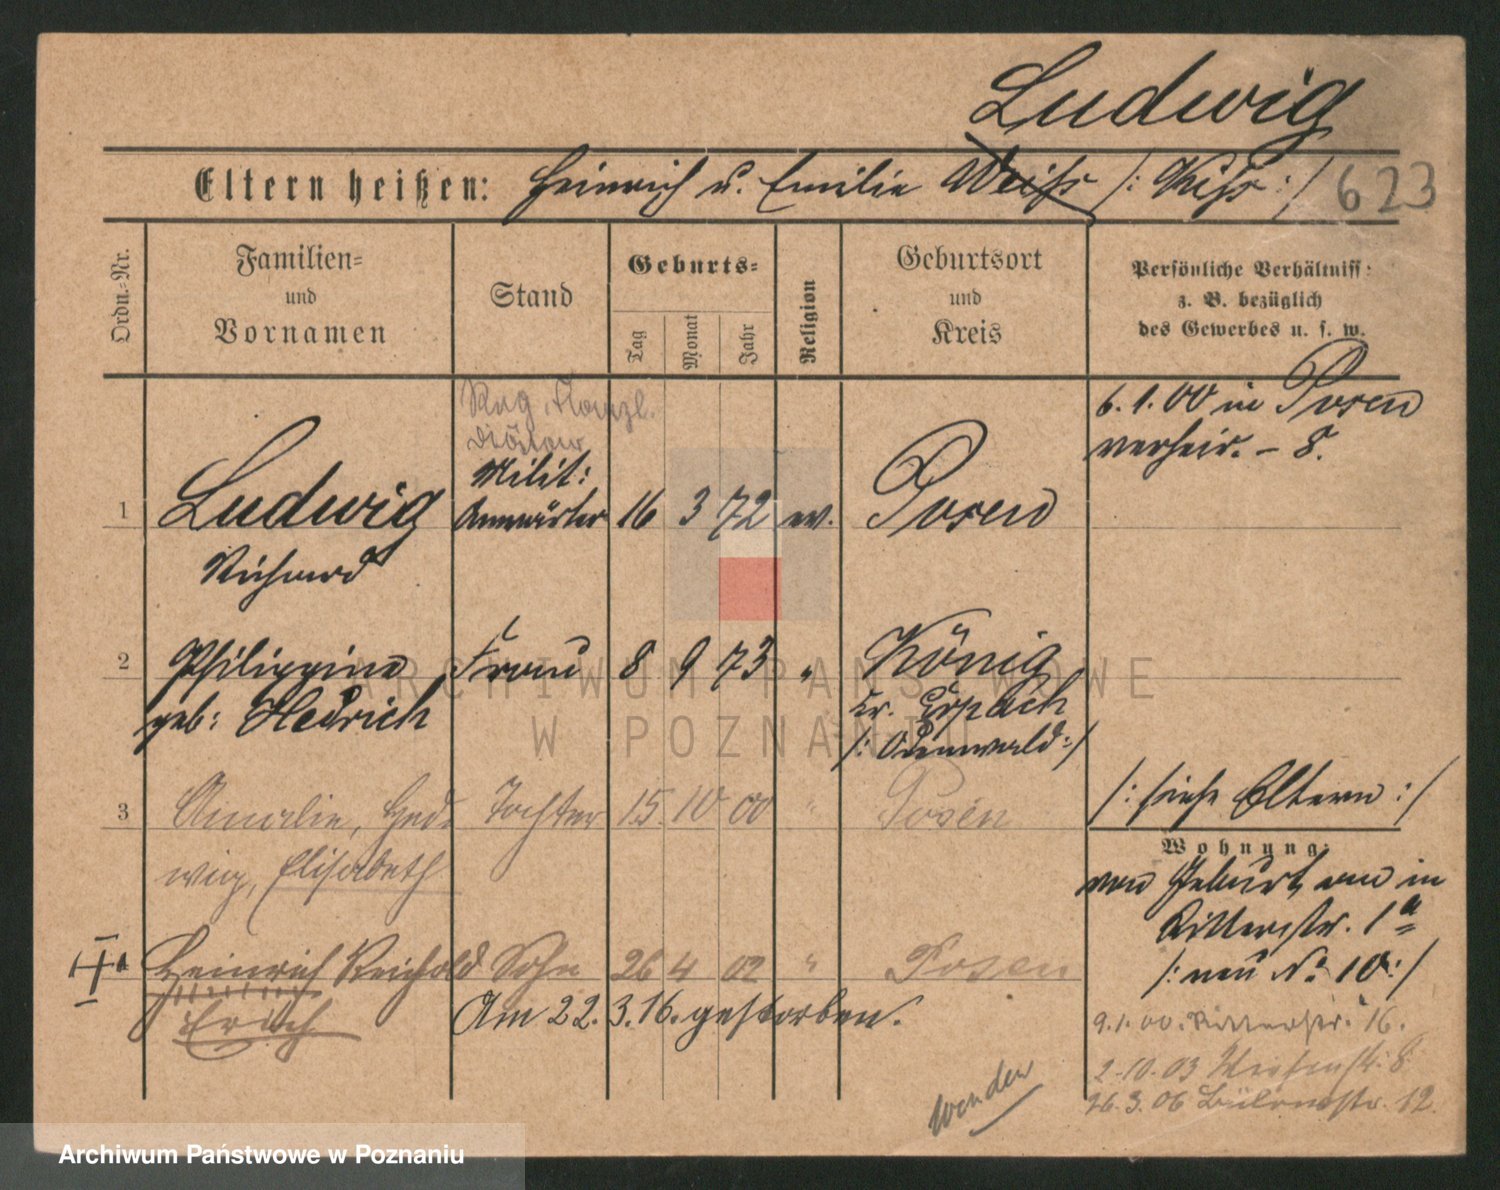 Ludwig
Eltern heißen: Heinrich u. Emilie Weiss /: Kuss :/ 623
Ordn.=Nr.
Familien= und Vornamen
Stand
Geburts=
Tag
Monat
Jahr
Religion
Geburtsort und Kreis
Persönliche Verhältniss: z. B. bezüglich des Gewerbes u. s. w.
6. 1. 00 in Posen
verheir. – 8.
Reg. Kanzl.
Diätar
Milit:
1 Ludwig Anwärter 16 3 72 ev. Posen
Richard
2 Philippine Frau 8 9 73 " König
geb: Hedrich Kr. Erpach
/: Odenwald :/
/: siehe Eltern :/
3 Amalie, Hed= Tochter 15 10 00 " Posen
wig, Elisabeth
Wohnung:
von Geburt an in
Ritterstr. 1a
/: neu No 10 :/
Heinrich Reichold Sohn 26 4 02 " Posen
Erich
Am 22. 3. 16. gestorben.
9. 1. 00. Ritterstr. 16.
2. 10. 03 Wiesenstr. 8.
26. 3. 06 Bülowstr. 12.
wenden
ARCHIWUM PAŃSTWOWE
W POZNANIU
Archiwum Państwowe w Poznaniu